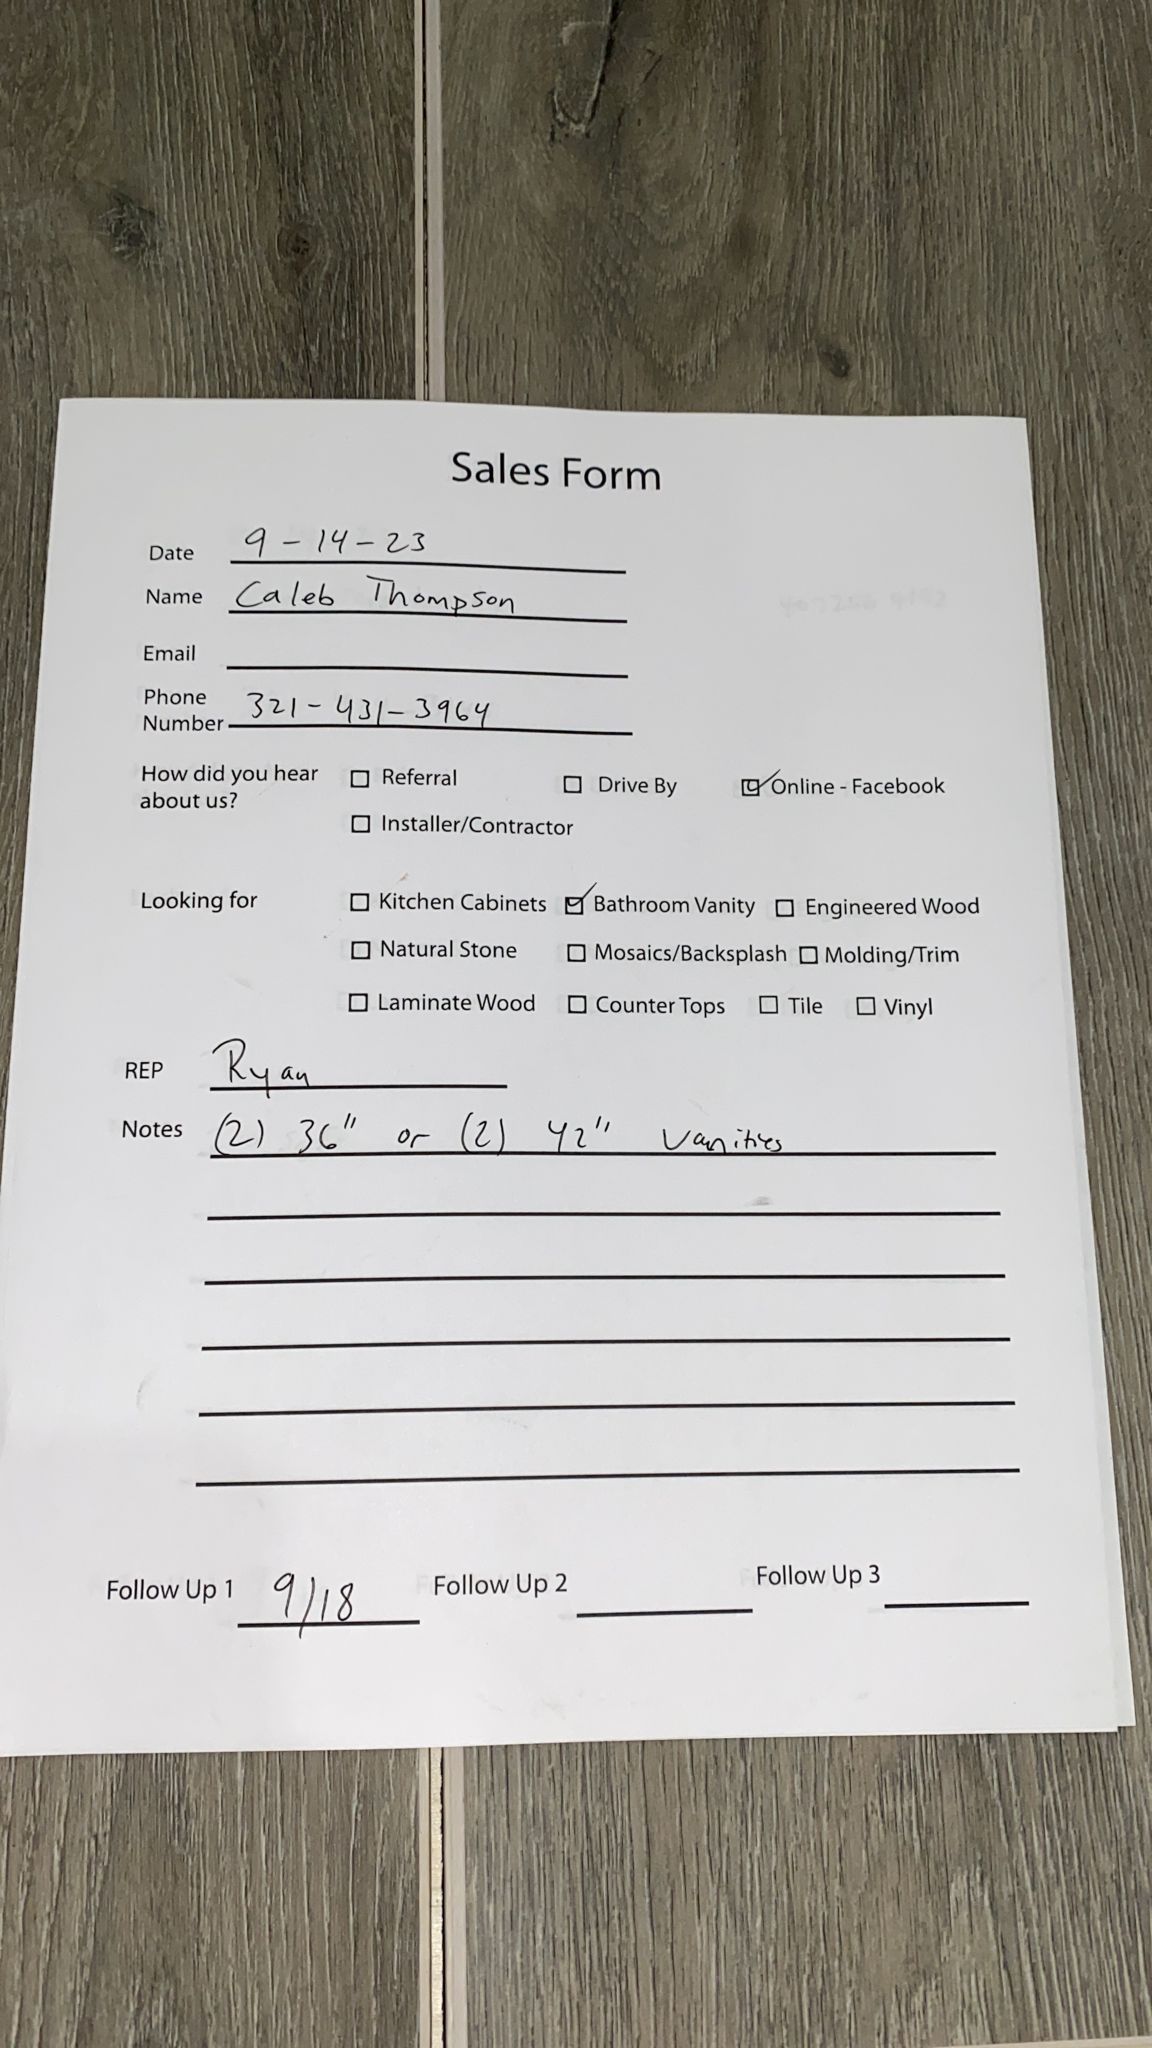 Sales Form
Date 9-14-23
Name Caleb Thompson
Email
Phone
Number 321-431-3964
How did you hear
about us?
☐ Referral ☐ Drive By ☑ Online - Facebook
☐ Installer/Contractor
Looking for ☐ Kitchen Cabinets ☑ Bathroom Vanity ☐ Engineered Wood
☐ Natural Stone ☐ Mosaics/Backsplash ☐ Molding/Trim
☐ Laminate Wood ☐ Counter Tops ☐ Tile ☐ Vinyl
REP Ryan
Notes (2) 36" or (2) 42" Vanities
Follow Up 1 9/18 Follow Up 2 Follow Up 3